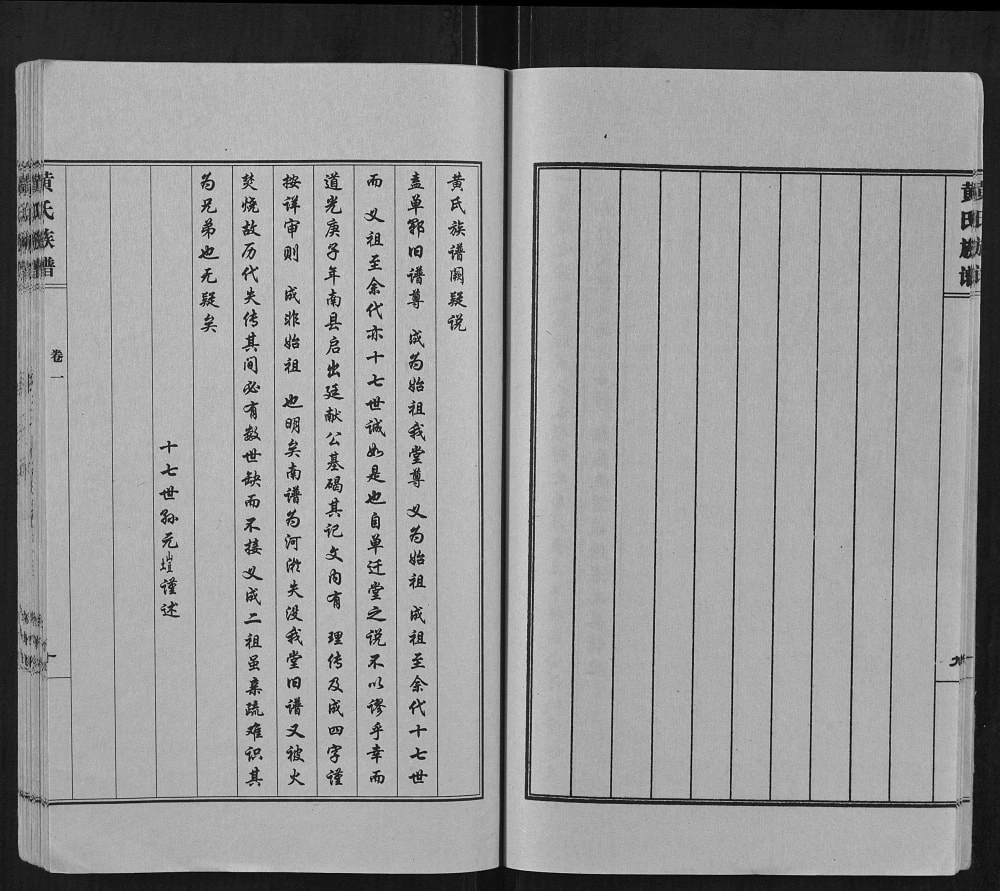 黄氏族谱
黄氏族谱阙疑说
盖单鄹旧谱尊 成为始祖我堂尊 义为始祖 成祖至余代十七世
而 义祖至余代亦十七世诚如是也自单迁堂之说不以谬乎幸而
道光庚子年南县启出廷献公墓碣其记文内有 理传及成四字谨
按详审则 成非始祖 也明矣南谱为河淤失没我堂旧谱又被火
焚烧故历代失传其间必有数世缺而不接义成二祖虽亲疏难识其
为兄弟也无疑矣
十七世孙元塏谨述
黄氏族谱
卷一
一